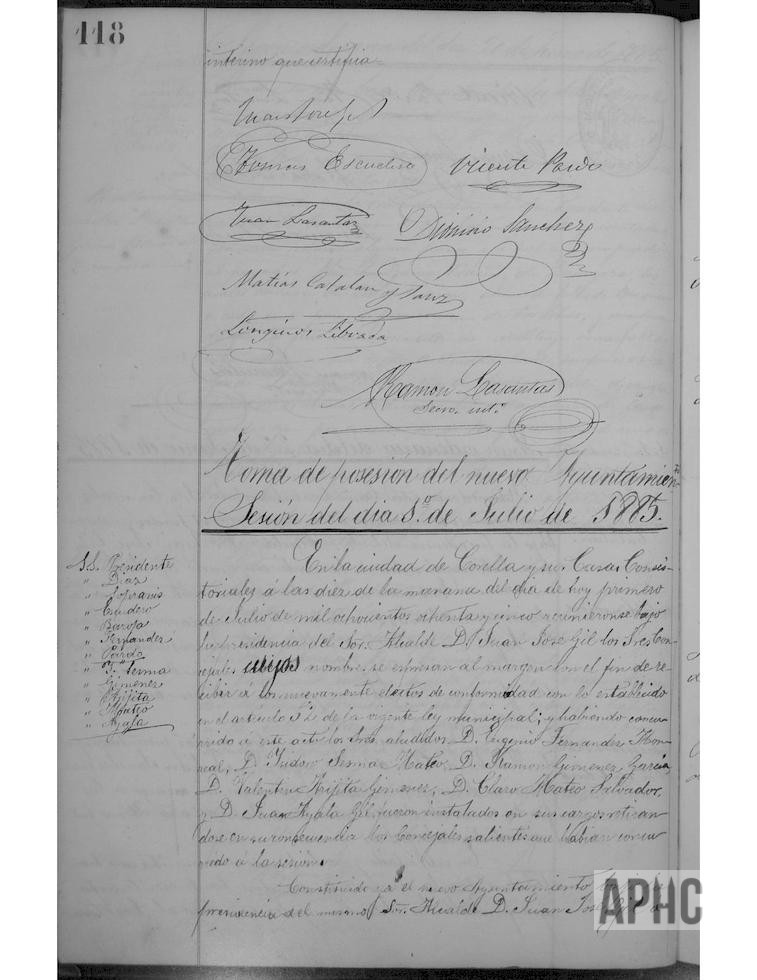 118
interino que certifica=
Tomas Escudero
Vicente Pardo
Juan Lasantas
Dionisio Sanchez
Matias Catalan y Sanz
Longinos Librada
Ramon Lasantas
Secro. intº
Toma de posesion del nuevo Ayuntamien-to
Sesión del dia 1º de Julio de 1885.
S.S. Presidente
" Diaz
" Sopranis
" Escudero
" Baroja
" Fernandez
" Pardo
" F. Serma
" Gimenez
" Arijita
" Mateo
" Ayala
En la ciudad de Corella y su Casa Consis-
toriales á las diez de la mañana del dia de hoy primero
de Julio de mil ochocientos ochenta y cinco reunieronse bajo
la presidencia del Sor. Alcalde D. Juan José Gil los Sres Con-
cejales cuyos nombres se expresan al margen con el fin de re-
cibir a los nuevamente electos de conformidad con lo establecido
en el artículo 52 de la vigente ley municipal; y habiendo concu-
rrido á este acto los Sres. aludidos D. Eugenio Fernandez Mon-
real, D. Isidoro Serma Mateo, D. Ramon Gimenez Garcia,
D. Valentin Arijita Gimenez, D. Claro Mateo Salvador,
y D. Juan Ayala Gil fueron instalados en sus cargos retiran-
dose en su consecuencia los Concejales salientes que habian concu-
rrido a la sesión.
Constituido ya el nuevo Ayuntamiento bajo la
presidencia del mismo Sor. Alcalde D. Juan José Gil
APHC